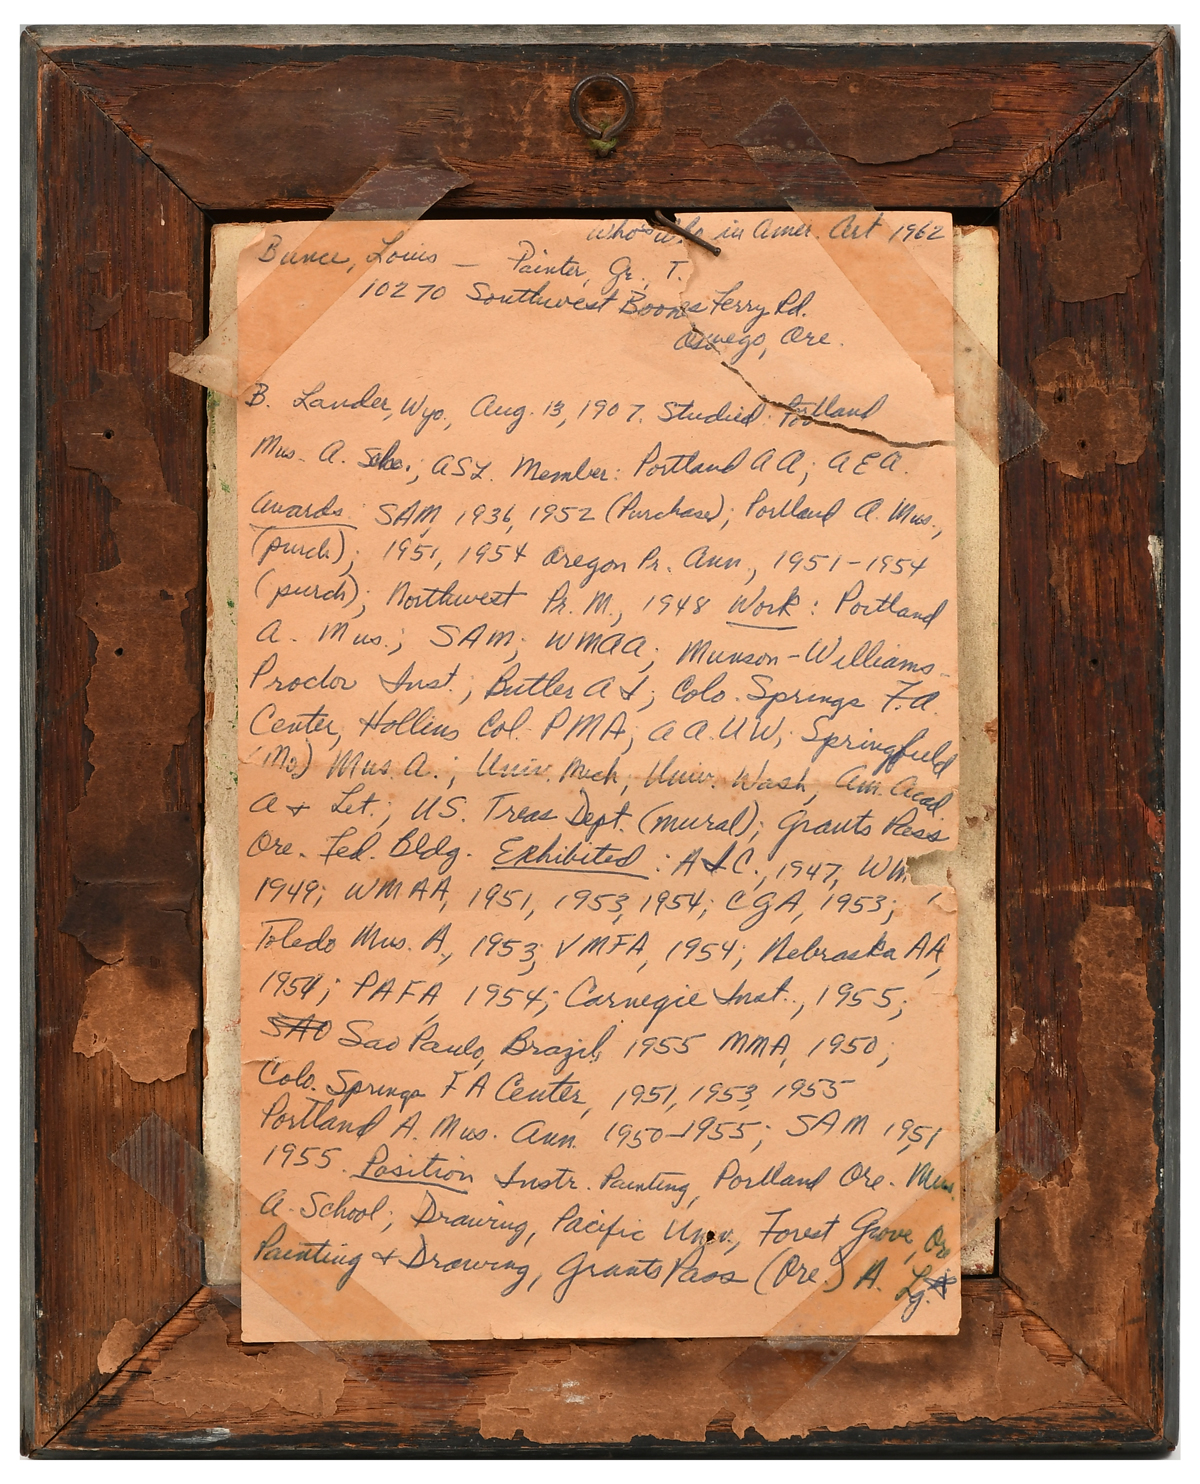 Who's Who in Amer. Art 1962
Bunce, Louis — Painter, Gr., T.
10270 Southwest Boones Ferry Rd.
Oswego, Ore.
B. Lander, Wyo., Aug. 13, 1907. Studied: Portland
Mus. A. Sch.; ASL. Member: Portland AA; AEA.
Awards: SAM, 1936, 1952 (Purchase); Portland A. Mus.,
(purch); 1951, 1954 Oregon Pr. Ann., 1951-1954
(purch); Northwest Pr. M., 1948 Work: Portland
A. Mus.; SAM; WMAA; Munson-Williams-
Proctor Inst.; Butler AI; Colo. Springs F.A.
Center, Hollins Col. PMA; AAUW; Springfield
(Mo) Mus. A.; Univ. Mich, Univ. Wash, Am. Acad.
A & Let.; US. Treas Dept. (mural); Grants Pass
Ore. Fed. Bldg. Exhibited: AIC., 1947,
1949; WMAA, 1951, 1953, 1954; CGA, 1953;
Toledo Mus. A., 1953; VMFA, 1954; Nebraska AA,
1954; PAFA, 1954; Carnegie Inst., 1955;
SAO Sao Paulo, Brazil, 1955 MMA, 1950;
Colo. Springs FA Center, 1951, 1953, 1955
Portland A. Mus. Ann. 1950-1955; SAM 1951
1955. Position Instr. Painting, Portland Ore. Mus.
A. School; Drawing, Pacific Univ., Forest Grove, Or
Painting & Drawing, Grants Pass (Ore.) A. Lg.